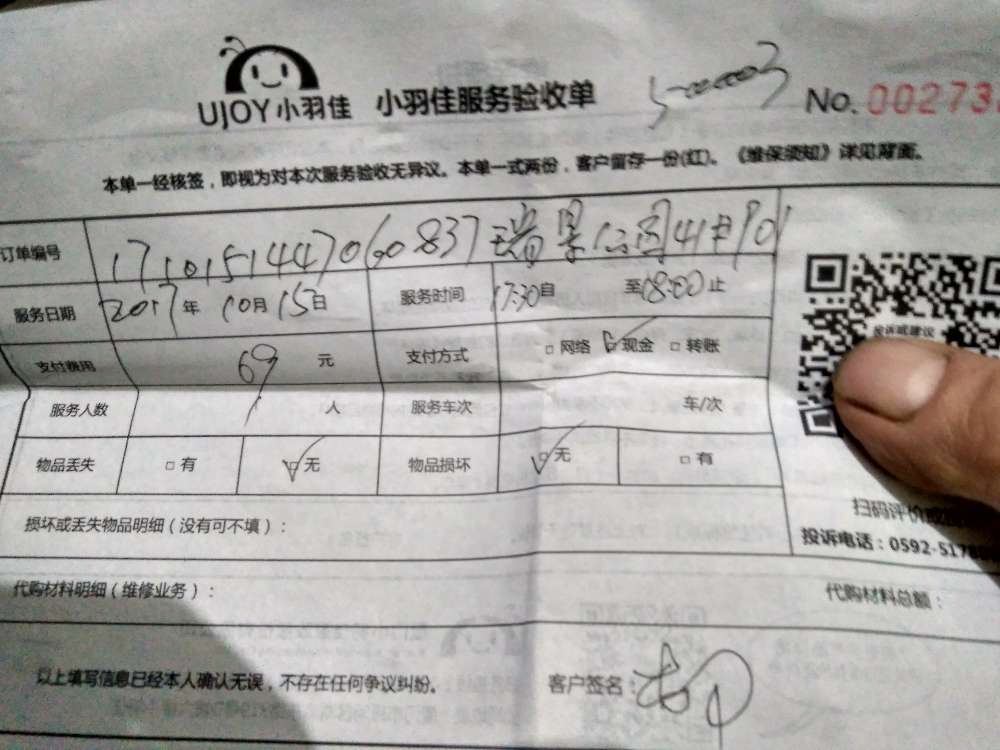 UJOY小羽佳 小羽佳服务验收单 No. 00273
本单一经核签，即视为对本次服务验收无异议。本单一式两份，客户留存一份(红)。《维保须知》详见背面。
订单编号 1710151447060837瑞景公园41#901
服务日期 2017年10月15日 服务时间 17:30自 至18:00止
支付费用 69 元 支付方式 □网络 ☑现金 □转账
服务人数 1 人 服务车次 车/次
物品丢失 □有 ☑无 物品损坏 ☑无 □有
投诉或建议
损坏或丢失物品明细（没有可不填）：
扫码评价或
投诉电话：0592-517
代购材料明细（维修业务）： 代购材料总额：
以上填写信息已经本人确认无误，不存在任何争议纠纷。 客户签名：